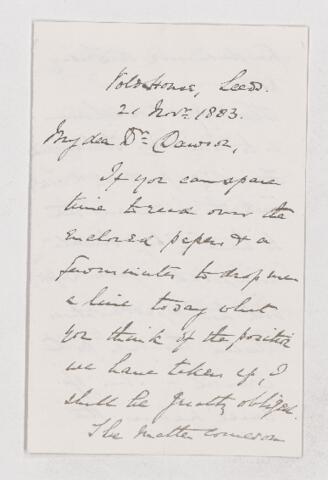 House, Leeds.
21 Novr. 1883.
My dear Dr. Dawson,
If you can spare
time to read over the
enclosed papers & a
few minutes to drop me
a line to say what
you think of the position
we have taken up, I
shall be greatly obliged.
The matter comes on